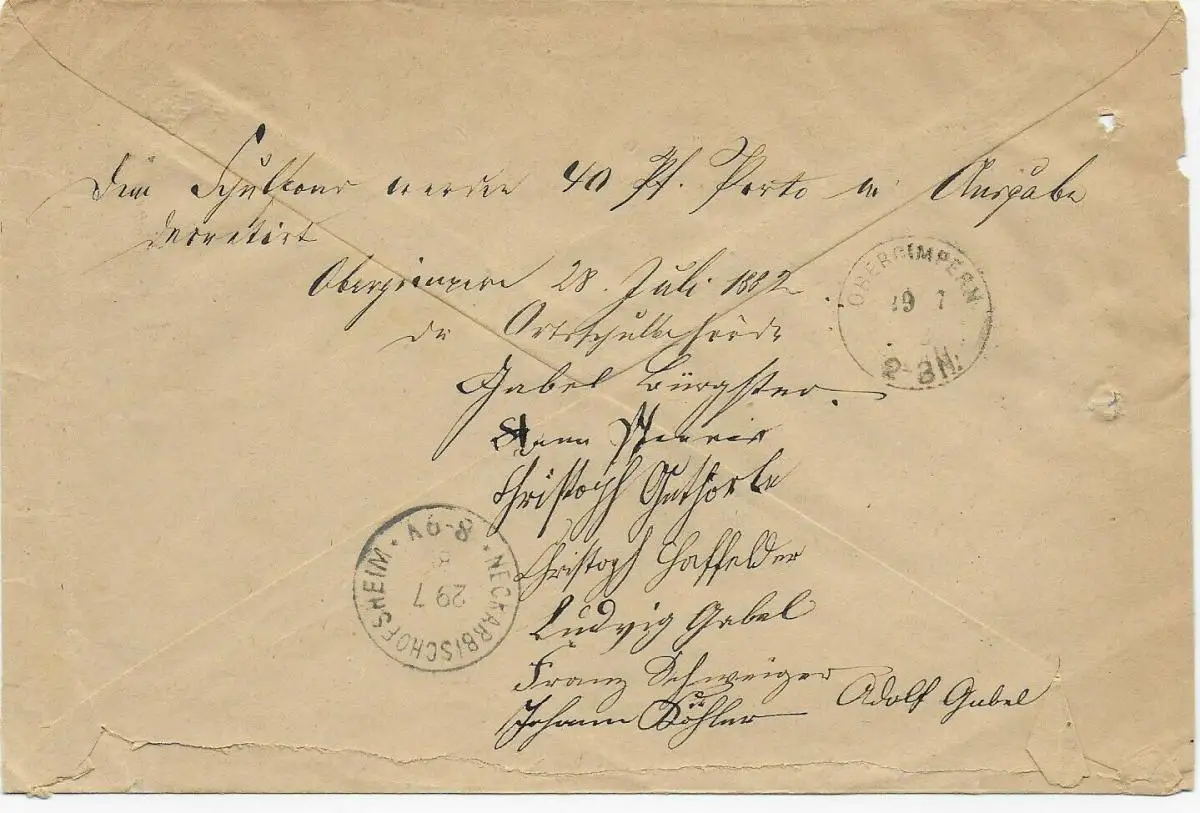 Dem Schulfond werden 40 Pf. Porto in Ausgabe
decretirt
Obergimpern 28. Juli 1882
die Ortsschulbehörde
Gabel Bürgstr.
Christoph
Christoph Haffelder
Ludwig Gabel
Franz Schweiger
Johann Köhler Adolf Gabel
OBERGIMPERN
29 7
2-3N.
* NECKARBISCHOFSHEIM *
29 7
8
8-9V